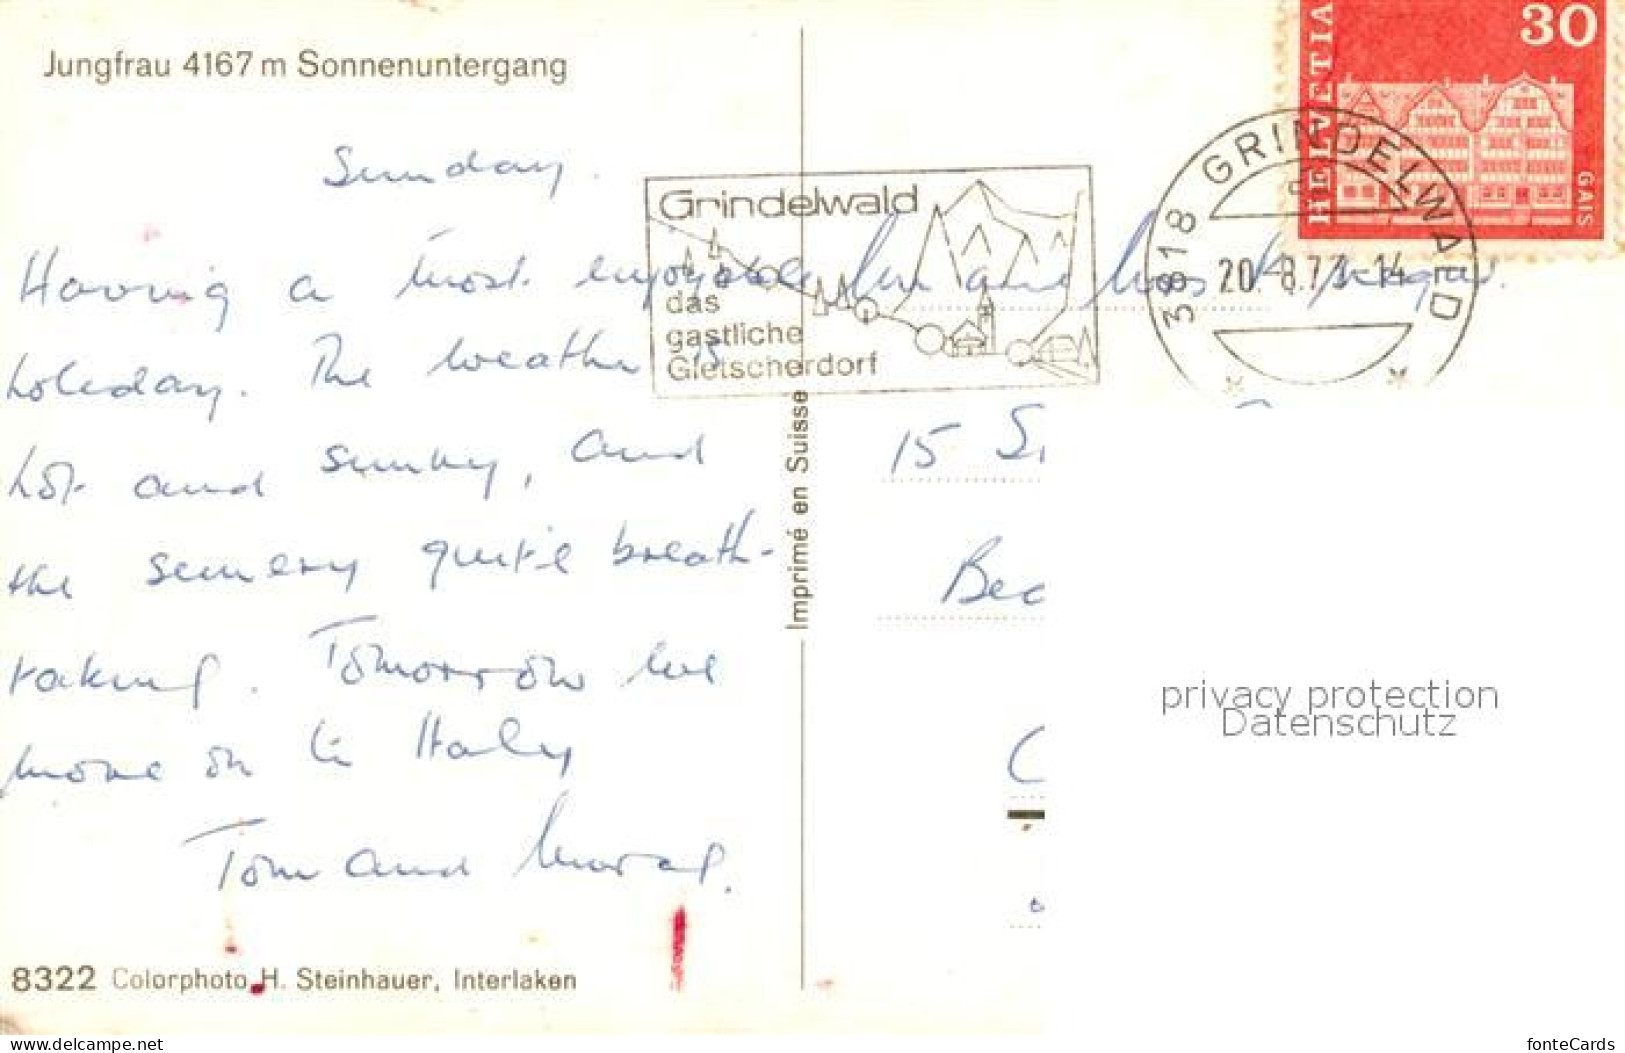 Jungfrau 4167 m Sonnenuntergang
Sunday.
Having a most enjoyable
holiday. The weather is
hot and sunny, and
the scenery quite breath-
taking. Tomorrow we
move on to Italy
Tom and Morag.
8322 Colorphoto H. Steinhauer, Interlaken
Imprimé en Suisse
Grindelwald
das
gastliche
Gletscherdorf
3818 GRINDELWALD
20.-8.73-14
HELVETIA
30
GAIS
15 S
Bec
C
privacy protection
Datenschutz
www.delcampe.net
fonteCards